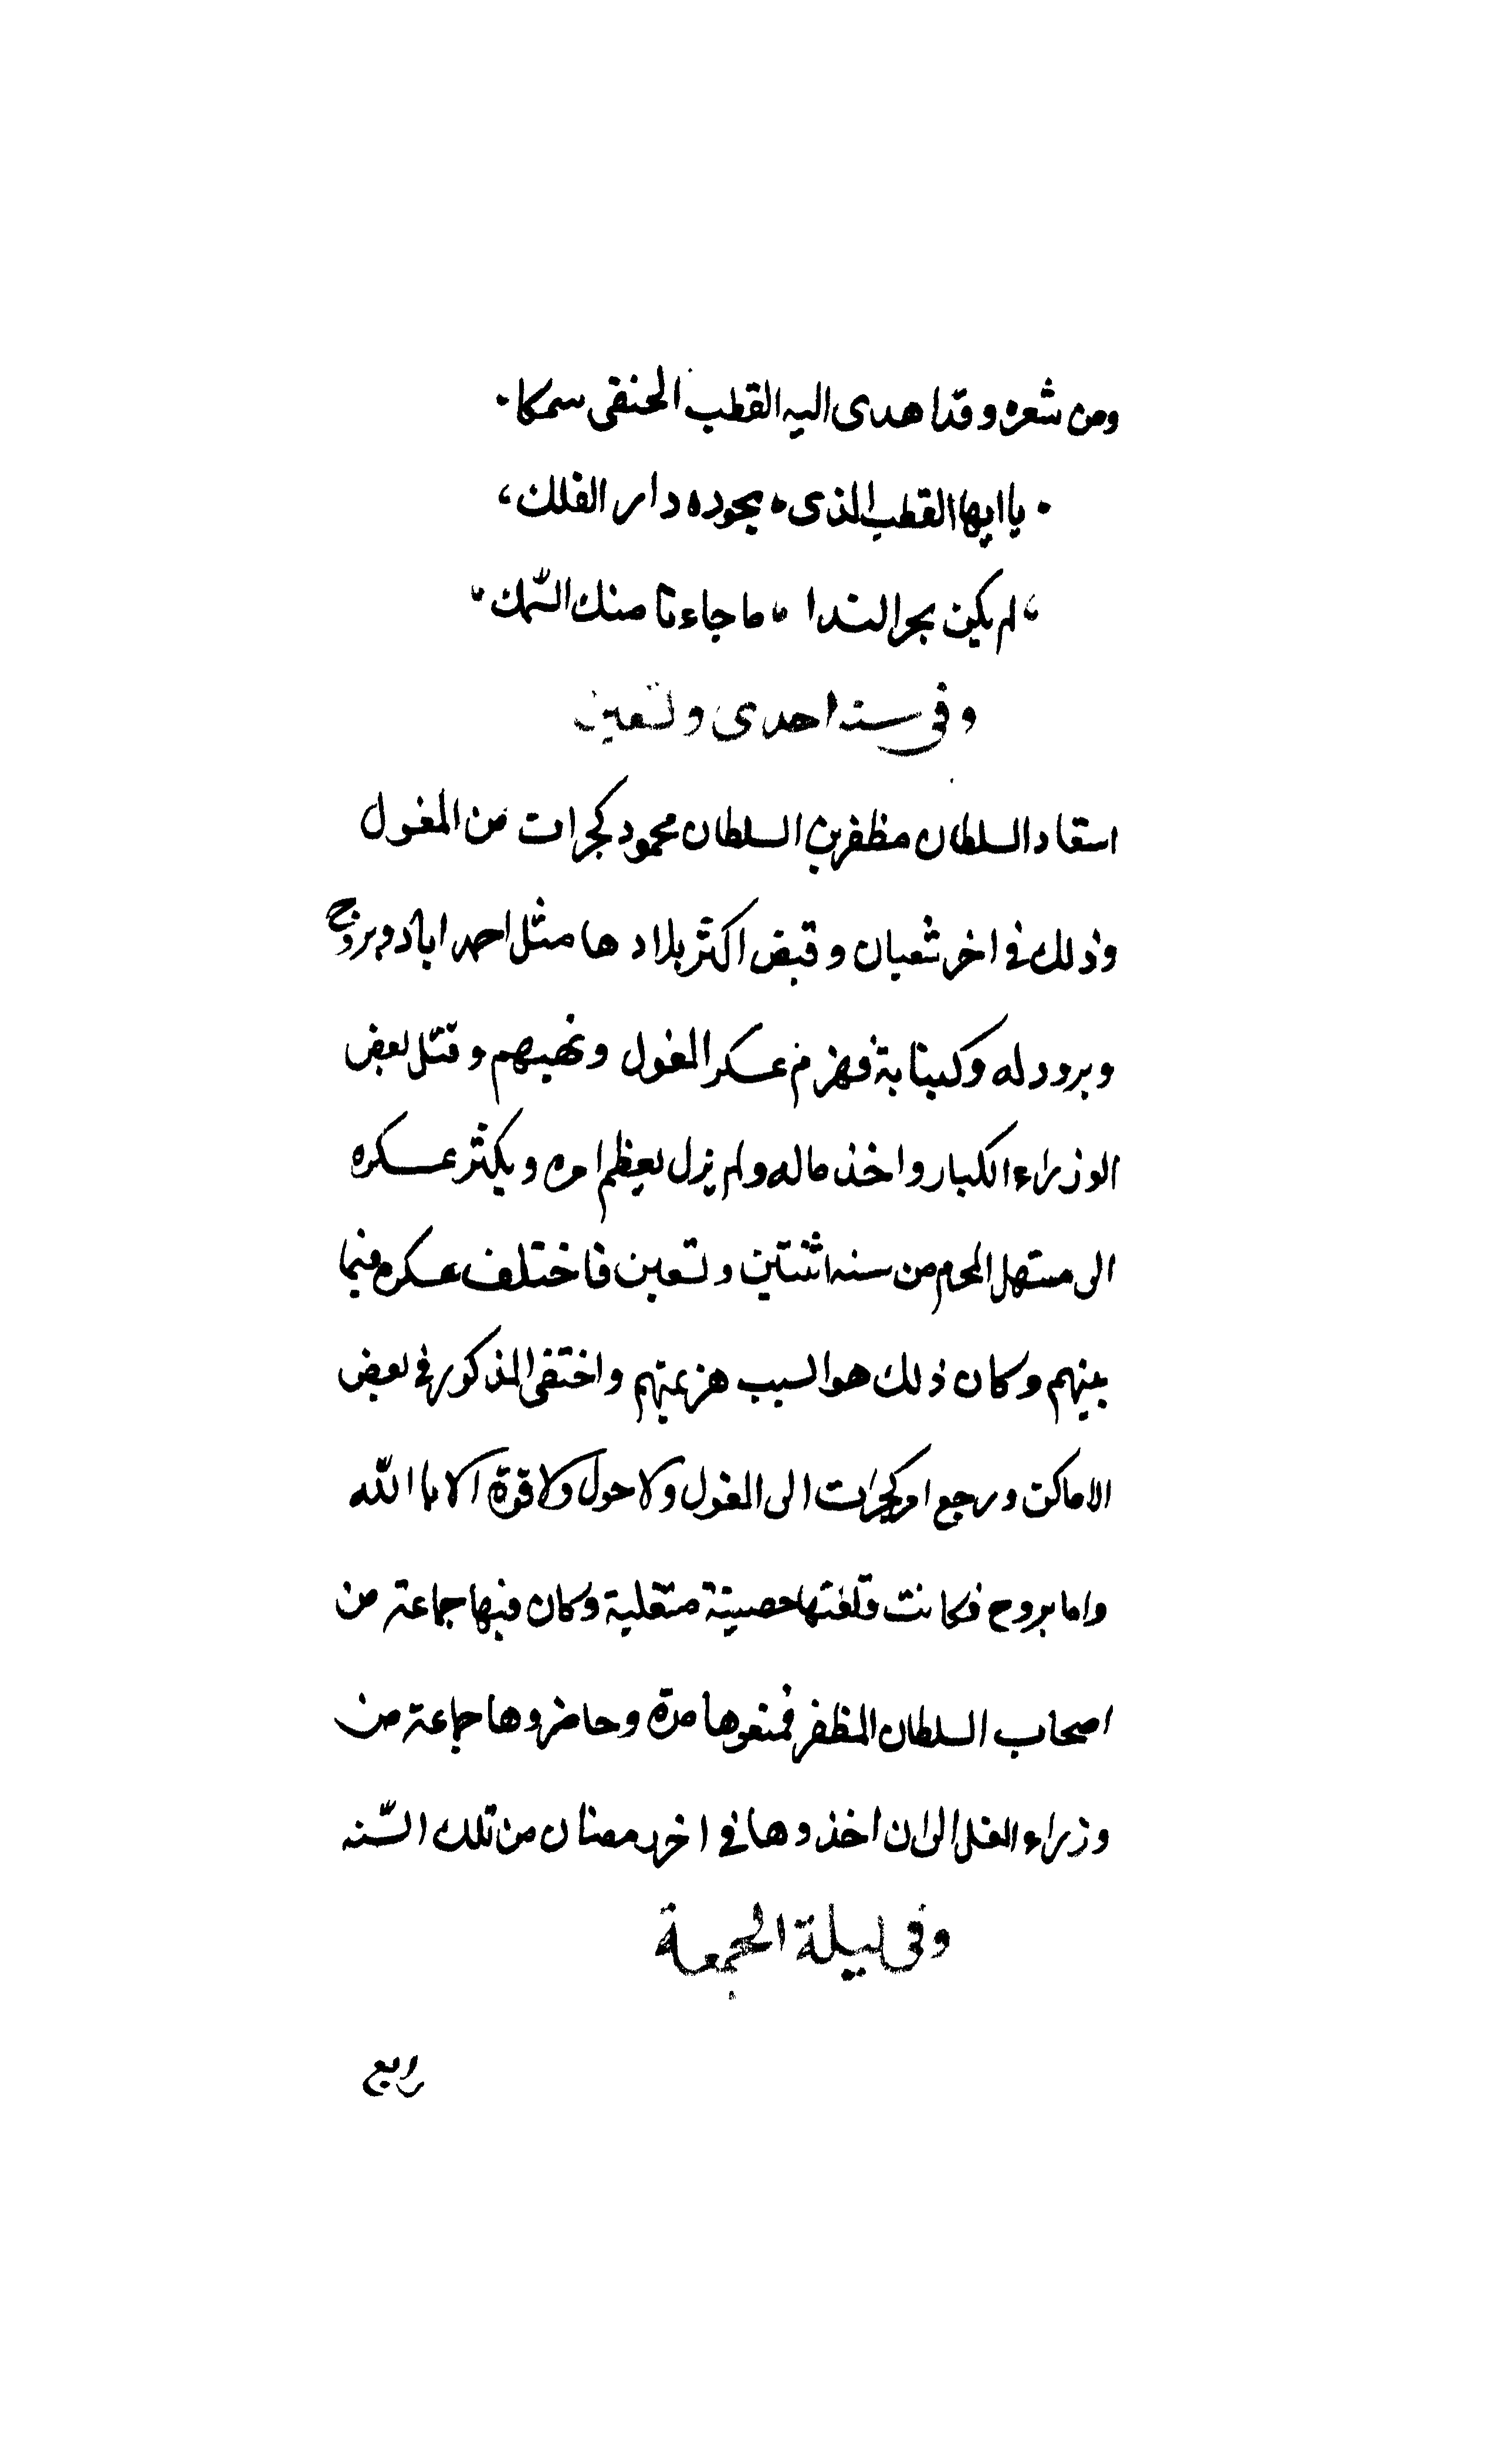 ومن شعره وقد اهدى اليه القطب الحنفى سمكا .
. يا ايها القطب الذى ، بجوده دار الفلك ،
، لم يكن بحر الندا ، ما جاءنا منك السّمك ،
وفى سنة احدى وتسعين
استعاد السلطان مظفر بن السلطان محمود كجرات من المغول
وذلك فى اخر شعبان وقبض اكثر بلادها مثل احمد اباد وبروج
وبرودله وكنباية فهزم عسكر المغول ونهبهم وقتل بعض
الوزراء الكبار واخذ ماله ولم يزل يعظم امره ويكثر عسكره
الى مستهل المحرم من سنه اثنتين وتسعين فاختلف عسكره فيما
بينهم وكان ذلك هو السبب هزيمتهم واختفى المذكور فى بعض
الاماكن ورجع امر كجرات الى المغول ولا حول ولا قوة الا باالله
واما بروج فكانت قلعتها حصينة متقلية وكان فيها جماعة من
اصحاب السلطان المظفر فمنعوها مدة وحاصروها جماعة من
وزراء المغل الى ان اخذوها فى اخر رمضان من تلك السّنه
وفى ليلة الجمعة
رابع